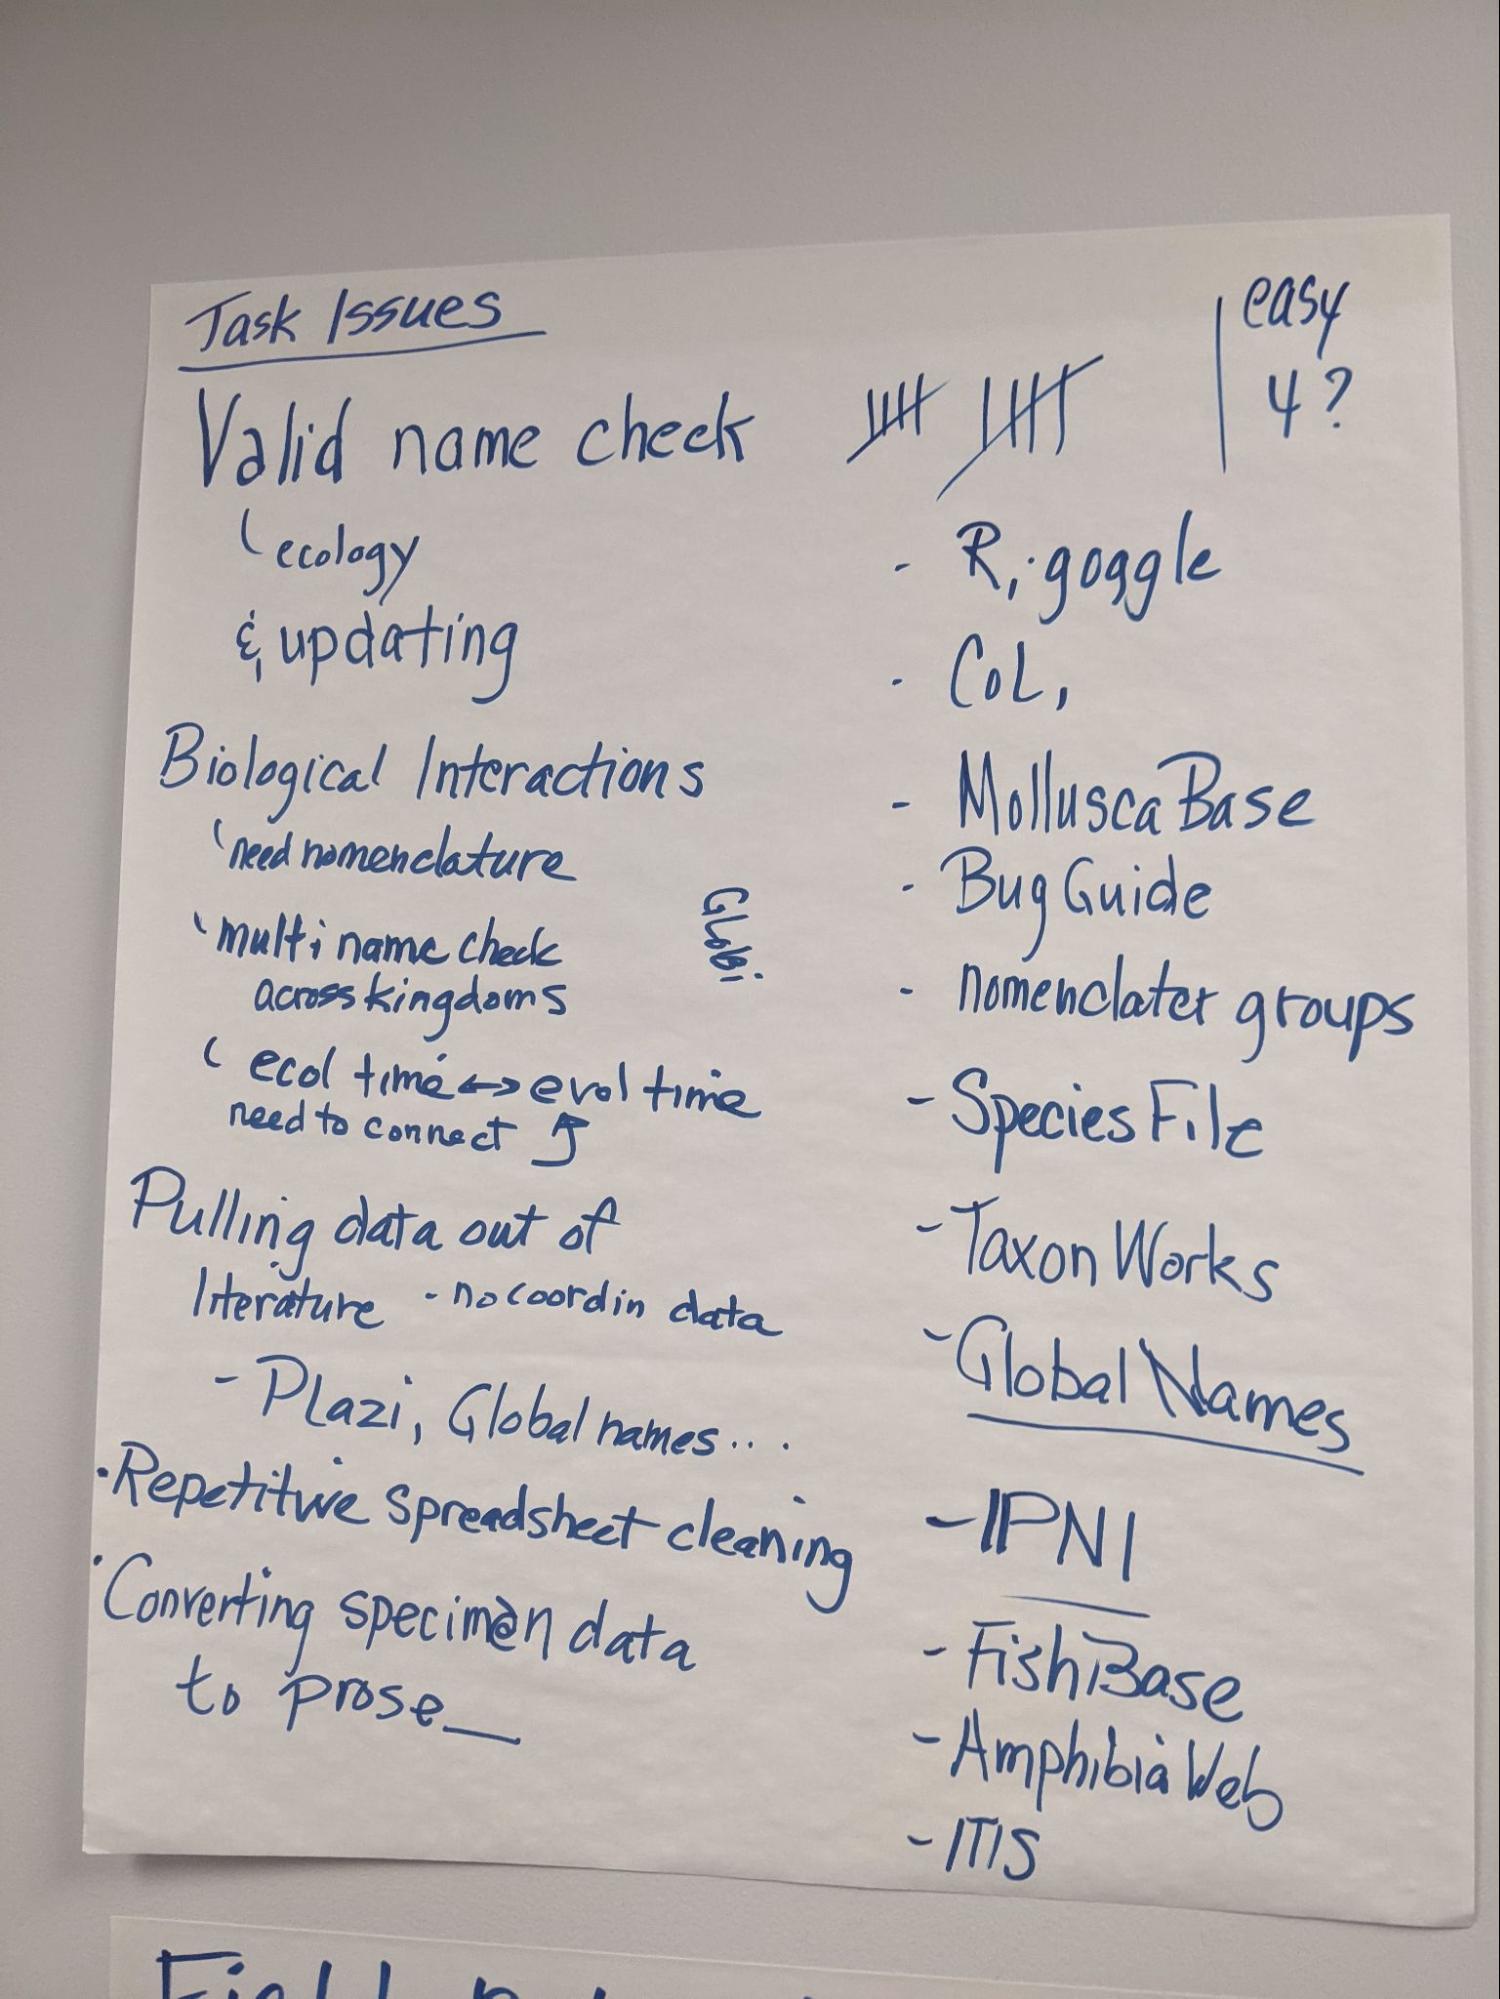 Task Issues
easy
4?
Valid name check
ecology
& updating
Biological Interactions
need nomenclature
multi name check
across kingdoms
Globi
ecol time ↔ evol time
need to connect
Pulling data out of
literature - no coordin data
- Plazi, Global names...
• Repetitive spreadsheet cleaning
• Converting specimen data
to prose
- R, goggle
- CoL,
- MolluscaBase
- Bug Guide
- nomenclater groups
- Species File
- Taxon Works
- Global Names
- IPNI
- FishBase
- Amphibia Web
- ITIS